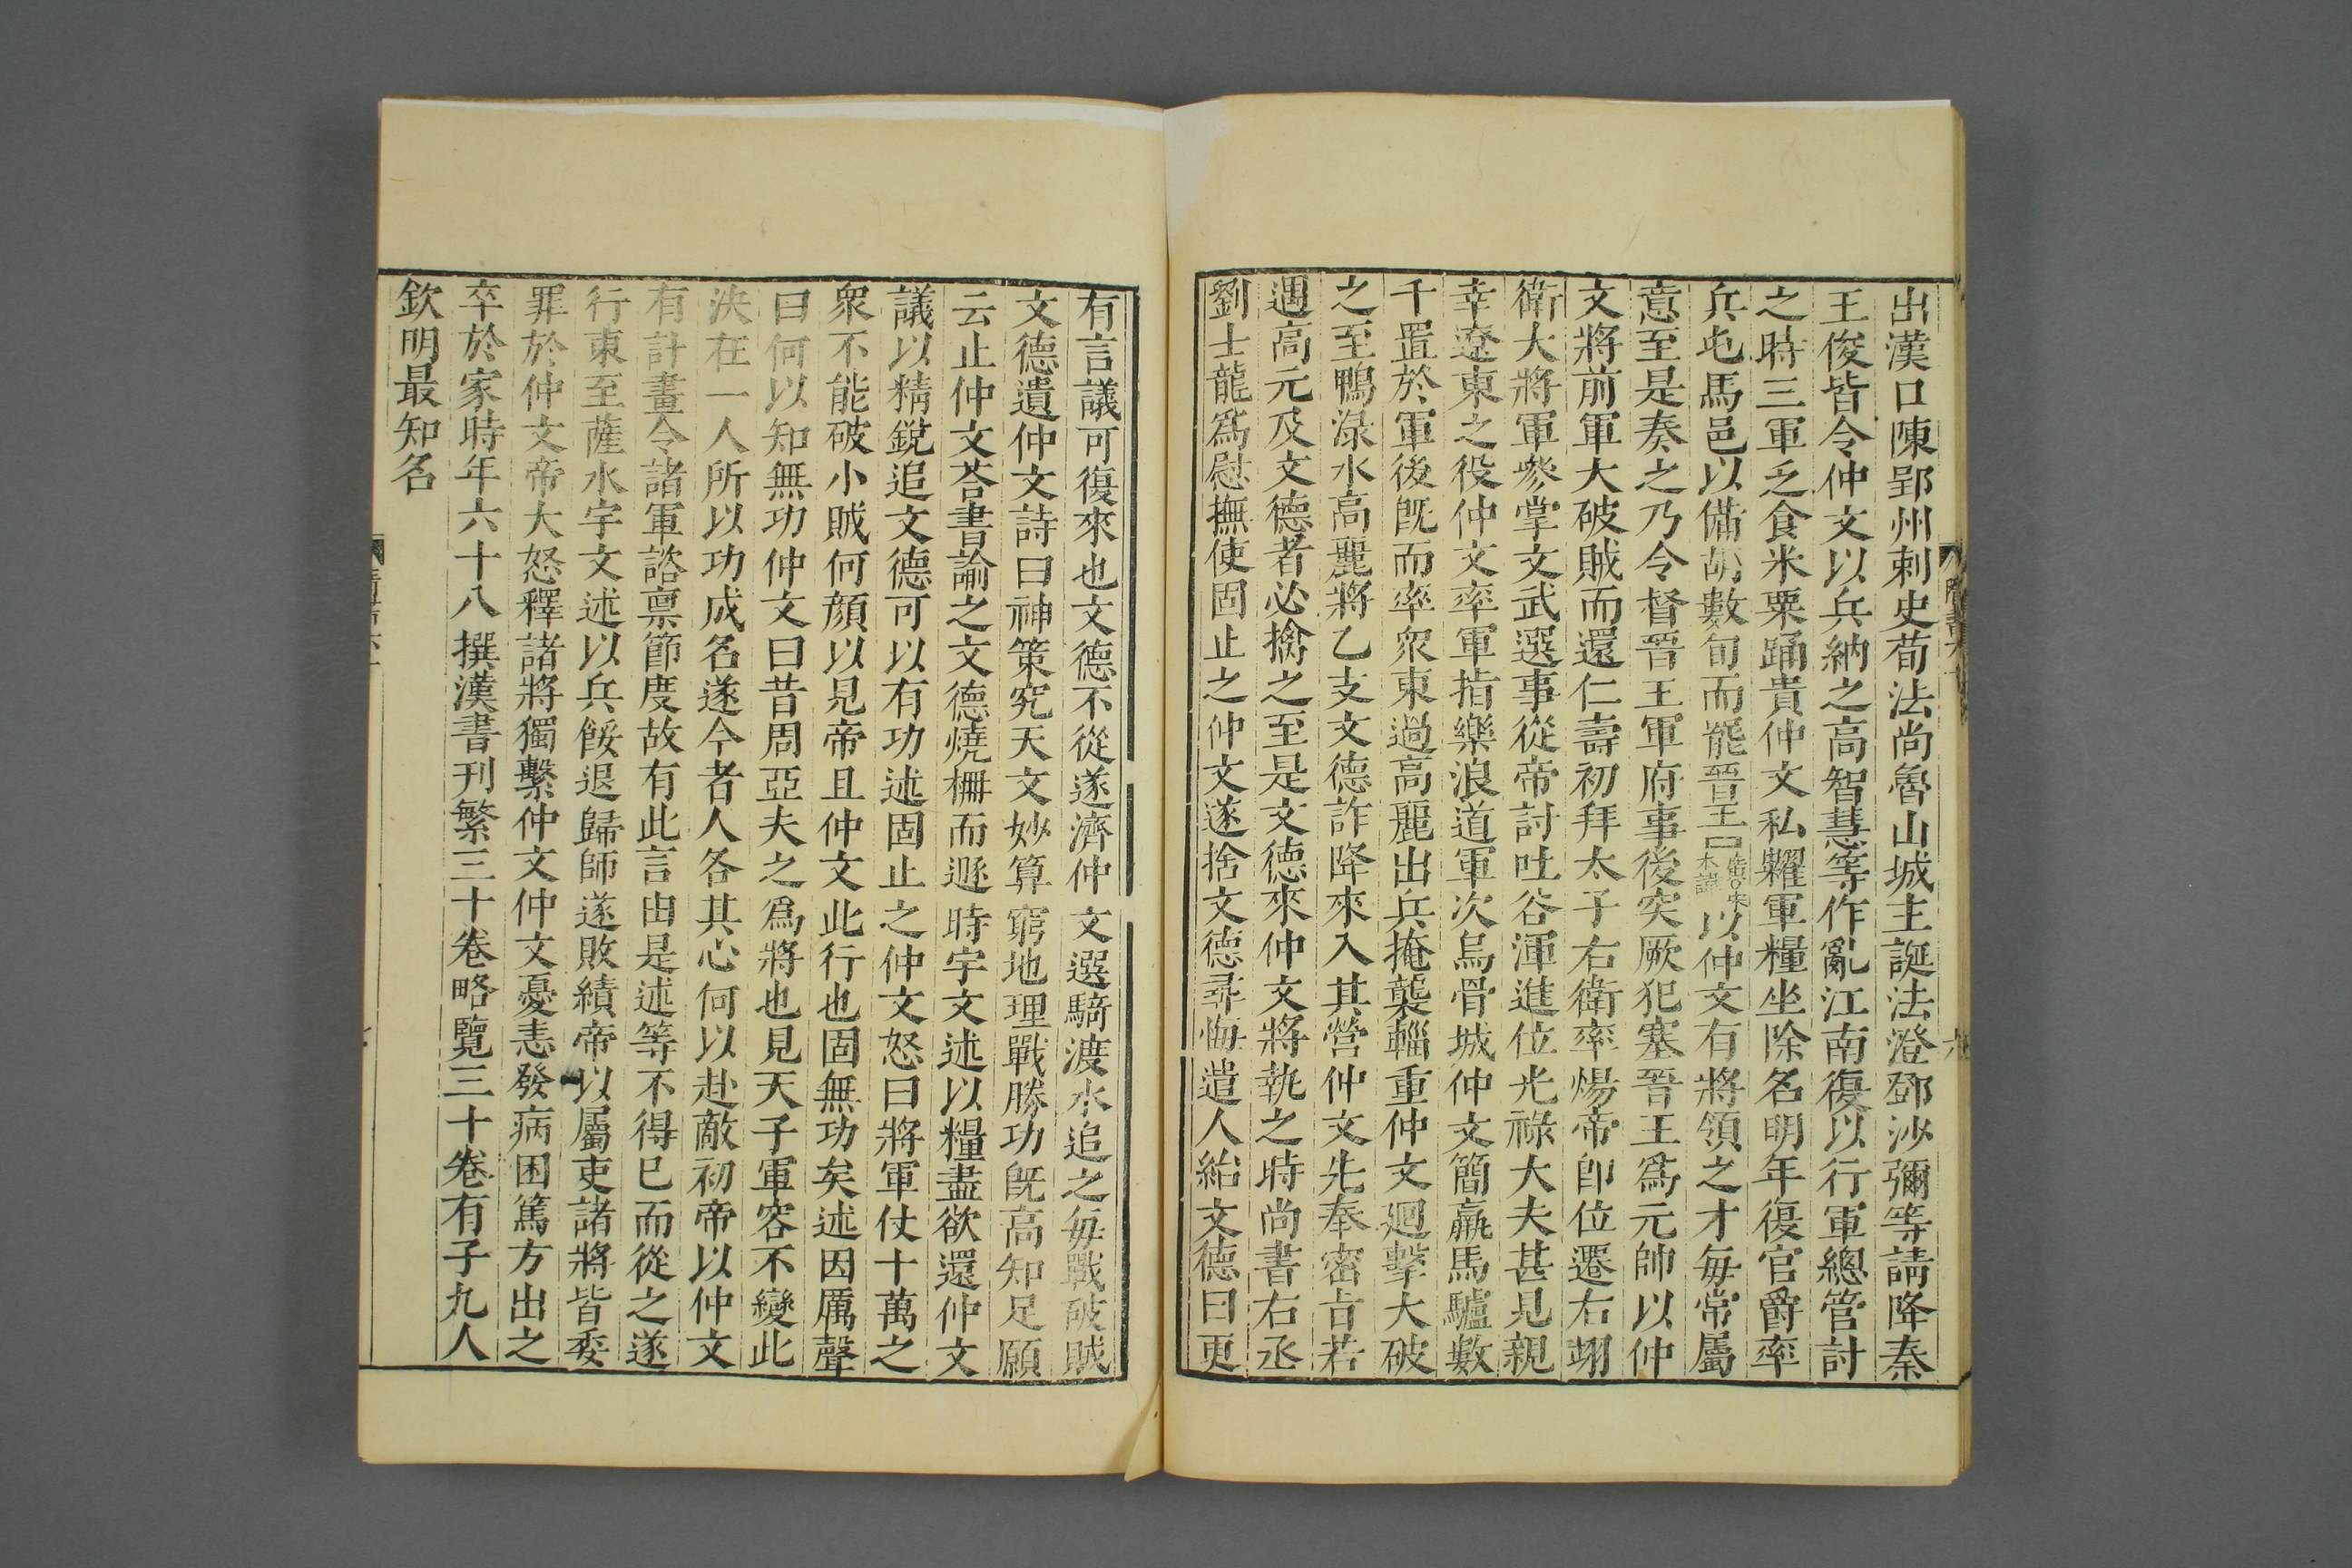 出漢口陳郢州刺史荀法尚魯山城主誕法澄鄧沙彌等請降秦
王俊皆令仲文以兵納之高智慧等作亂江南復以行軍總管討
之時三軍乏食米粟踊貴仲文私糶軍糧坐除名明年復官爵率
兵屯馬邑以備胡數旬而罷晉王以仲文有將領之才每常屬
意至是奏之乃令督晉王軍府事後突厥犯塞晉王爲元帥以仲
文將前軍大破賊而還仁壽初拜太子右衛率煬帝卽位遷右翊
衛大將軍參掌文武選事從帝討吐谷渾進位光祿大夫甚見親
幸遼東之役仲文率軍指樂浪道軍次烏骨城仲文簡羸馬驢數
千置於軍後旣而率衆東過高麗出兵掩襲輜重仲文廻擊大破
之至鴨淥水高麗將乙支文德詐降來入其營仲文先奉密旨若
遇高元及文德者必擒之至是文德來仲文將執之時尚書右丞
劉士龍爲慰撫使固止之仲文遂捨文德尋悔遣人紿文德曰更
有言議可復來也文德不從遂濟仲文選騎渡水追之每戰破賊
文德遺仲文詩曰神策究天文妙算窮地理戰勝功旣高知足願
云止仲文荅書諭之文德燒柵而遯時宇文述以糧盡欲還仲文
議以精銳追文德可以有功述固止之仲文怒曰將軍仗十萬之
衆不能破小賊何顏以見帝且仲文此行也固無功矣述因厲聲
曰何以知無功仲文曰昔周亞夫之爲將也見天子軍容不變此
決在一人所以功成名遂今者人各其心何以赴敵初帝以仲文
有計畫令諸軍諮禀節度故有此言由是述等不得已而從之遂
行東至薩水宇文述以兵餒退歸師遂敗績帝以屬吏諸將皆委
罪於仲文帝大怒釋諸將獨繫仲文仲文憂恚發病困篤方出之
卒於家時年六十八撰漢書刊繁三十卷略覽三十卷有子九人
欽明最知名